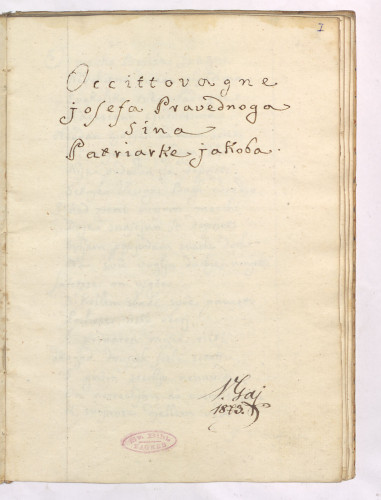 Occittovagne
josefa Pravednoga
sina
Patriarke jakoba.
Gaj
1875.